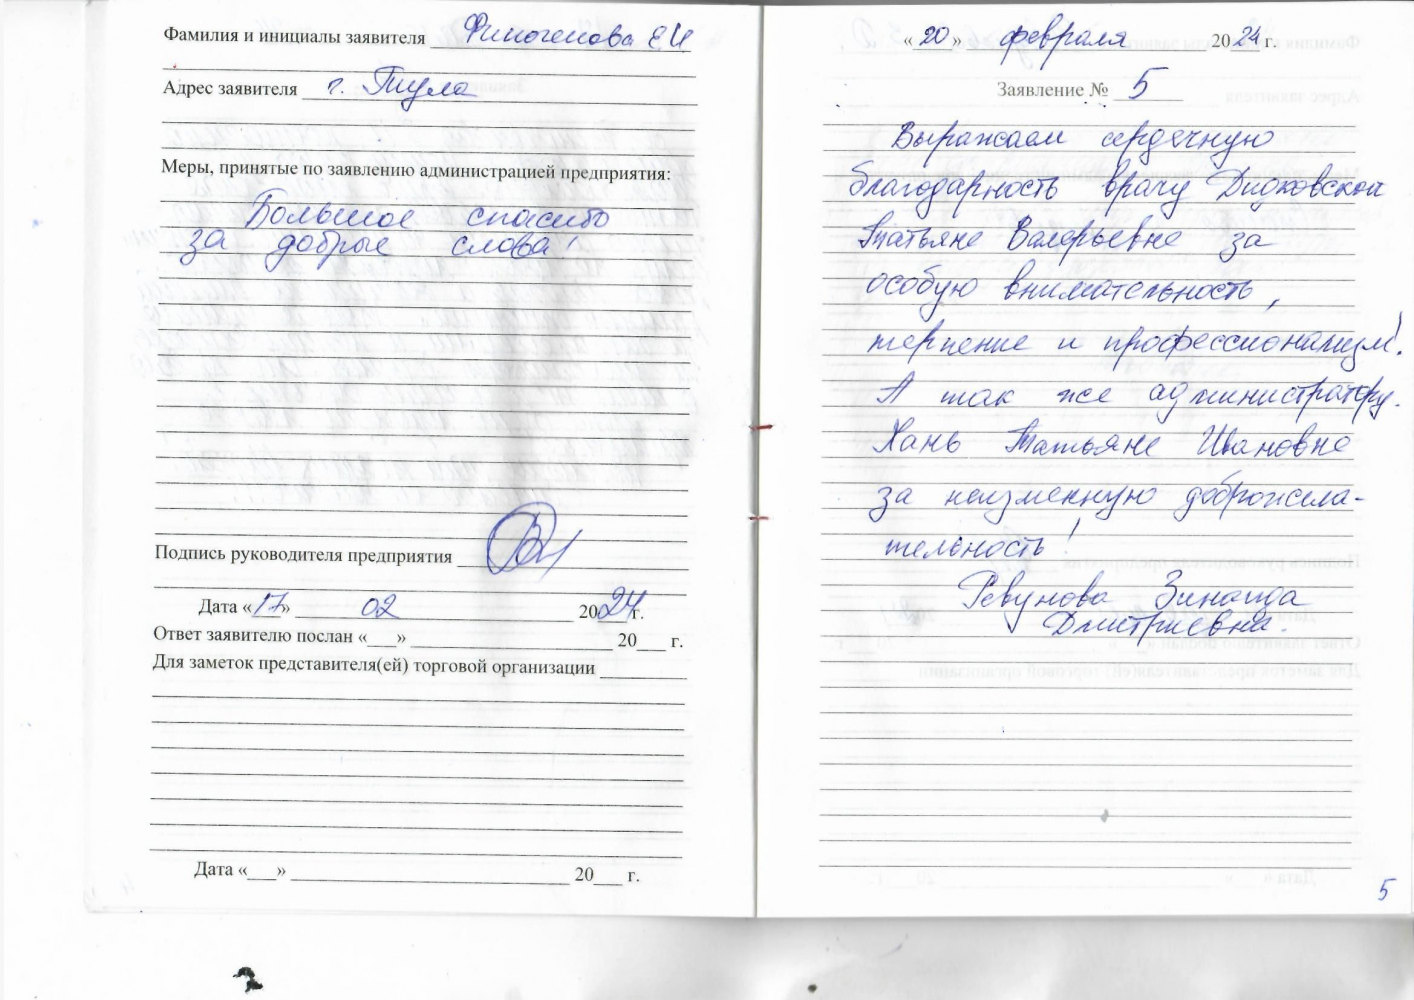 Фамилия и инициалы заявителя Финогенова Е И
Адрес заявителя г. Тула
Меры, принятые по заявлению администрацией предприятия:
Большое спасибо
за добрые слова!
Подпись руководителя предприятия
Дата «17» 02 2024г.
Ответ заявителю послан «___» 20___ г.
Для заметок представителя(ей) торговой организации
Дата «___» 20___ г.
«20» февраля 2024 г.
Заявление № 5
Выражаем сердечную
благодарность врачу Дидковской
Татьяне Валерьевне за
особую внимательность,
терпение и профессионализм!
А так же администратору
Хань Татьяне Ивановне
за неизменную доброжела-
тельность!
Ревунова Зинаида
Дмитриевна.
5